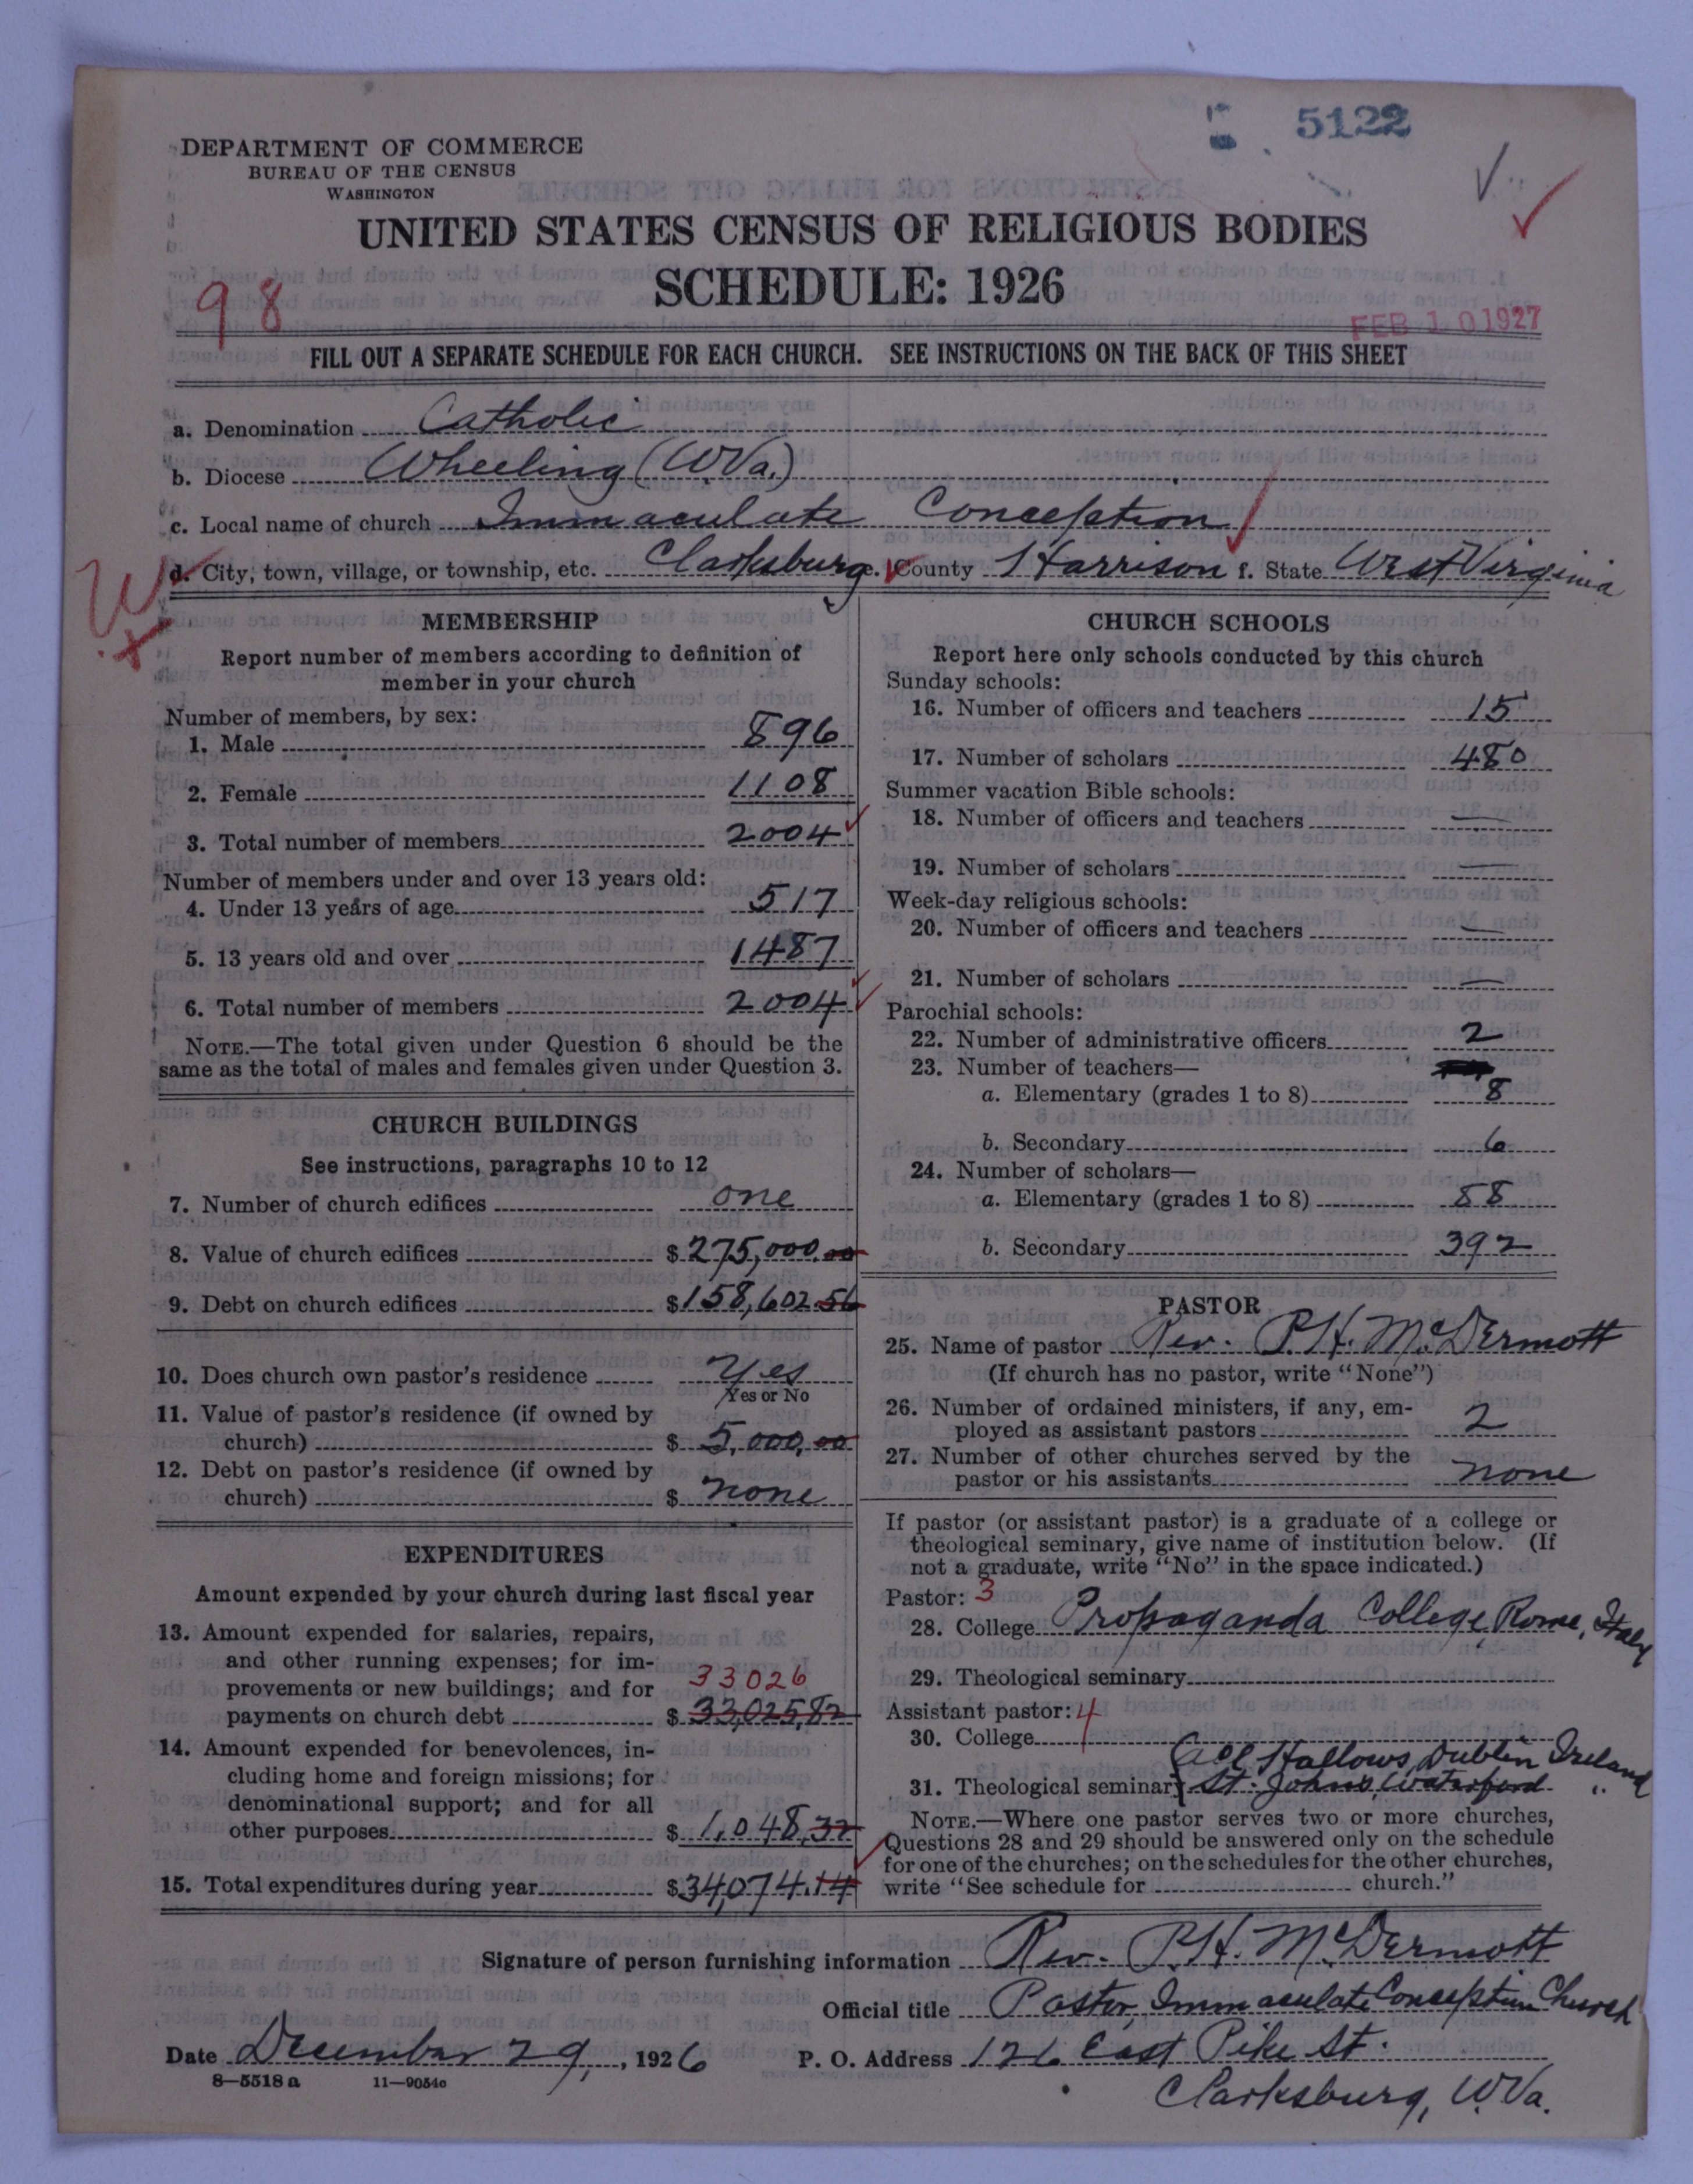 5122
DEPARTMENT OF COMMERCE
BUREAU OF THE CENSUS
WASHINGTON
UNITED STATES CENSUS OF RELIGIOUS BODIES
SCHEDULE: 1926
98
FEB 10 1927
FILL OUT A SEPARATE SCHEDULE FOR EACH CHURCH. SEE INSTRUCTIONS ON THE BACK OF THIS SHEET
a. Denomination Catholic
b. Diocese Wheeling (W.Va.)
c. Local name of church Immaculate Conception
d. City, town, village, or township, etc. Clarksburg e. County Harrison f. State West Virginia
MEMBERSHIP
Report number of members according to definition of
member in your church
Number of members, by sex:
1. Male 896
2. Female 1108
3. Total number of members 2004
Number of members under and over 13 years old:
4. Under 13 years of age 517
5. 13 years old and over 1487
6. Total number of members 2004
NOTE.—The total given under Question 6 should be the
same as the total of males and females given under Question 3.
CHURCH BUILDINGS
See instructions, paragraphs 10 to 12
7. Number of church edifices one
8. Value of church edifices $275,000.00
9. Debt on church edifices $158,602.56
10. Does church own pastor's residence Yes
Yes or No
11. Value of pastor's residence (if owned by
church) $ 5,000.00
12. Debt on pastor's residence (if owned by
church) $ none
EXPENDITURES
Amount expended by your church during last fiscal year
13. Amount expended for salaries, repairs,
and other running expenses; for im-
provements or new buildings; and for 33026
payments on church debt $ 33,025,82
14. Amount expended for benevolences, in-
cluding home and foreign missions; for
denominational support; and for all
other purposes $ 1,048,32
15. Total expenditures during year $34,074.14
CHURCH SCHOOLS
Report here only schools conducted by this church
Sunday schools:
16. Number of officers and teachers 15
17. Number of scholars 480
Summer vacation Bible schools:
18. Number of officers and teachers —
19. Number of scholars —
Week-day religious schools:
20. Number of officers and teachers —
21. Number of scholars —
Parochial schools:
22. Number of administrative officers 2
23. Number of teachers—
a. Elementary (grades 1 to 8) 8
b. Secondary 6
24. Number of scholars—
a. Elementary (grades 1 to 8) 88
b. Secondary 392
PASTOR
25. Name of pastor Rev. P.H. McDermott
(If church has no pastor, write "None")
26. Number of ordained ministers, if any, em-
ployed as assistant pastors 2
27. Number of other churches served by the
pastor or his assistants none
If pastor (or assistant pastor) is a graduate of a college or
theological seminary, give name of institution below. (If
not a graduate, write "No" in the space indicated.)
Pastor: 3
28. College Propaganda College, Rome, Italy
29. Theological seminary
Assistant pastor: 4
30. College
All Hallows, Dublin Ireland
31. Theological seminary St. Johns, Waterford "
NOTE.—Where one pastor serves two or more churches,
Questions 28 and 29 should be answered only on the schedule
for one of the churches; on the schedules for the other churches,
write "See schedule for church."
Signature of person furnishing information Rev. P.H. McDermott
Official title Pastor, Immaculate Conception Church
Date December 29, 1926 P. O. Address 126 East Pike St.
8—5518a 11—9054c
Clarksburg, W.Va.